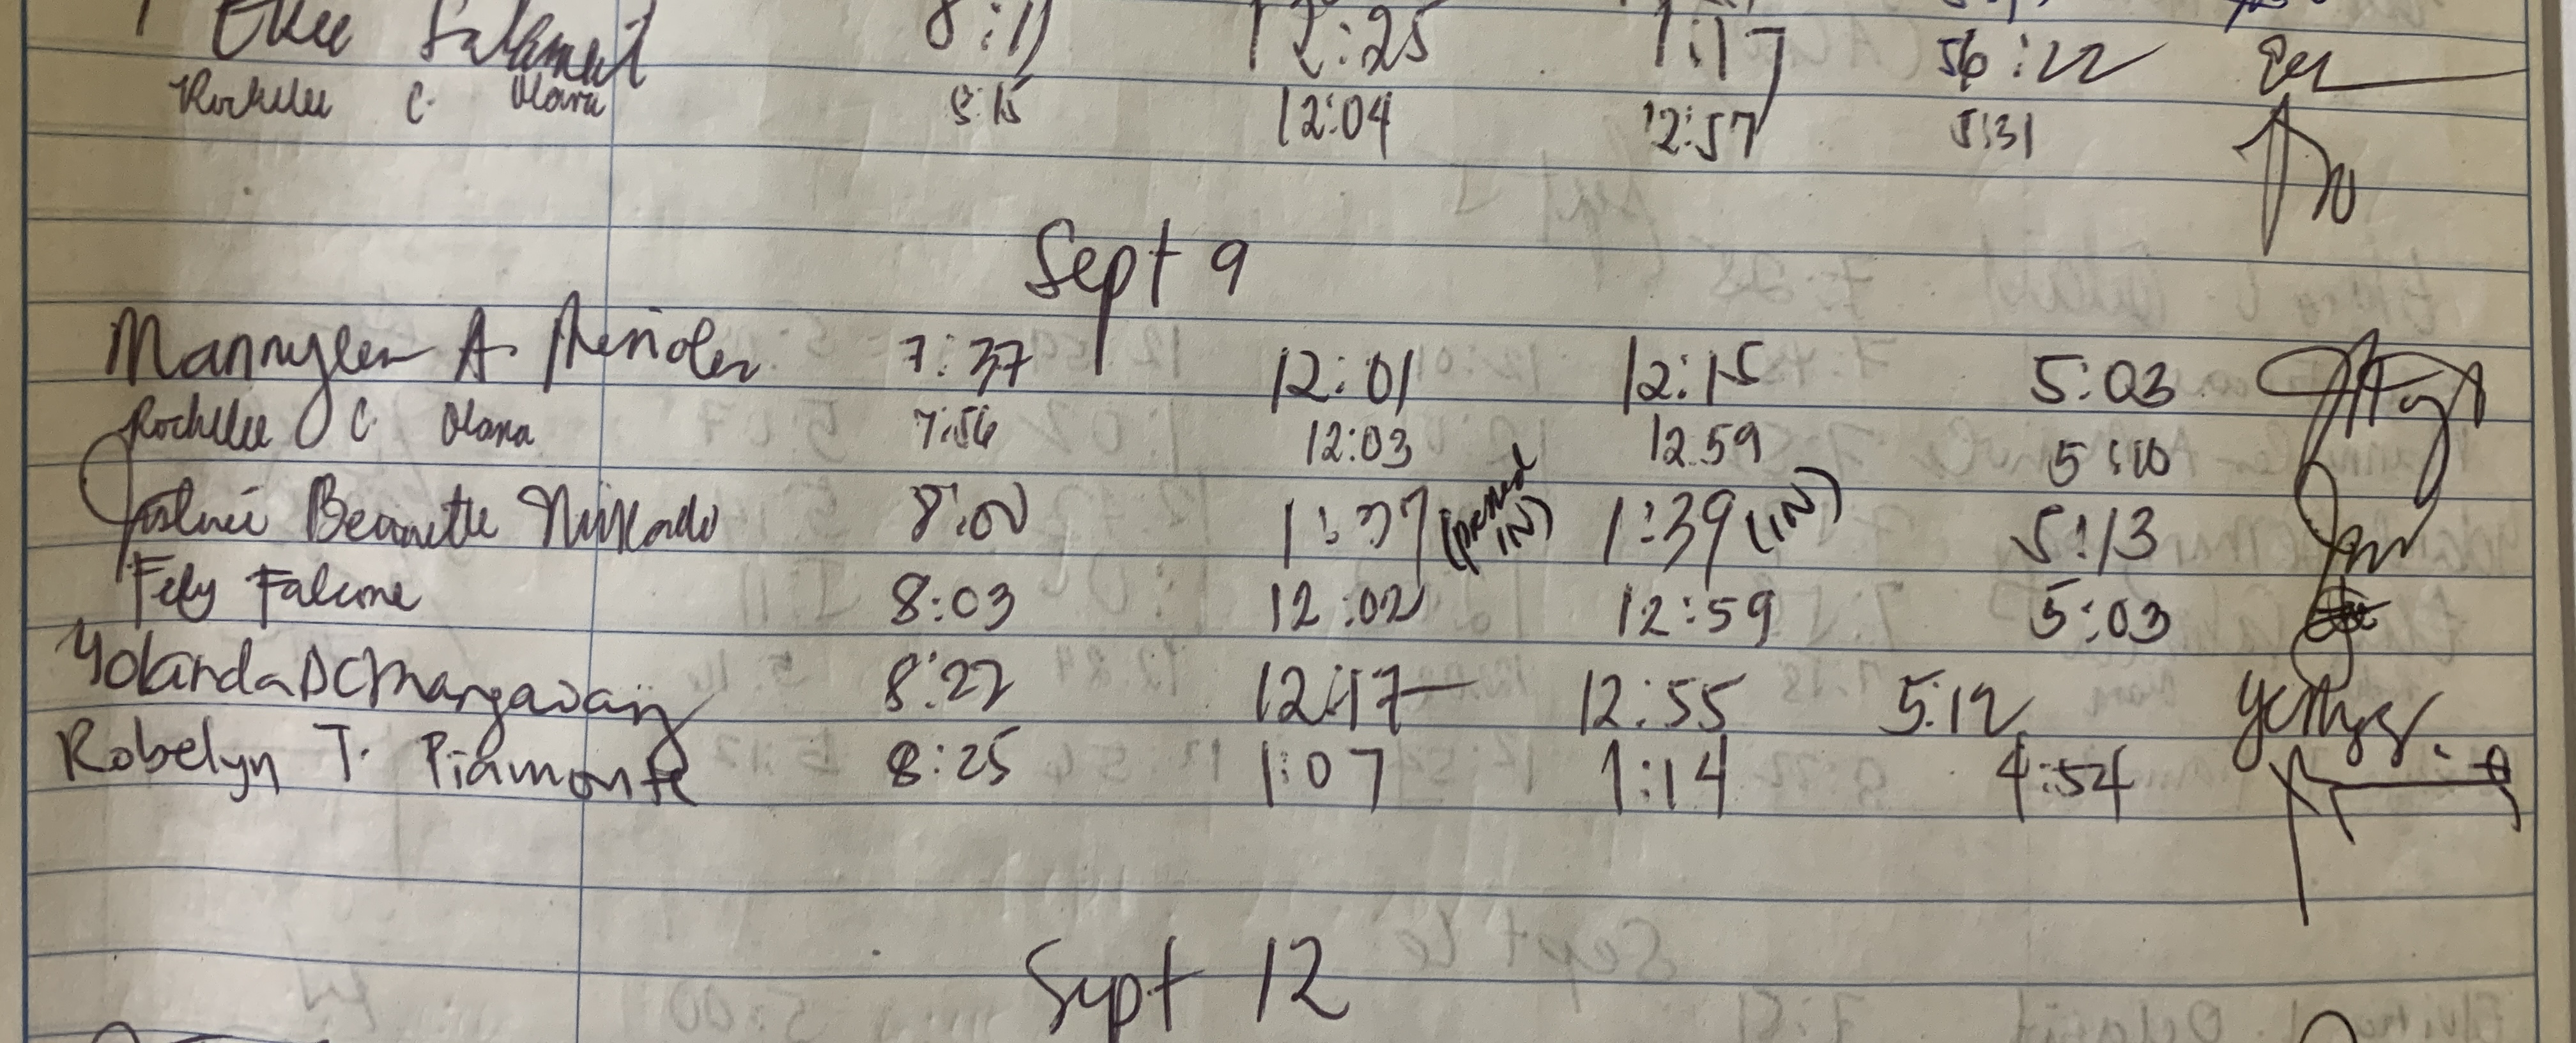 8:11 12:25 1:17 56:22
Rochelle C. Olana 8:15 12:04 12:57 5:31
Sept 9
Mannylen A. 7:37 12:01 12:15 5:03
Rochelle C. Olana 7:56 12:03 12:59 5:10
Bennette 8:00 1:37 IN) 1:39 (IN) 5:13
Fely Falcone 8:03 12:02 12:59 5:03
Yolanda DC Mangawang 8:22 12:17 12:55 5:12
Robelyn T. Piamonte 8:25 1:07 1:14 4:54
Sept 12